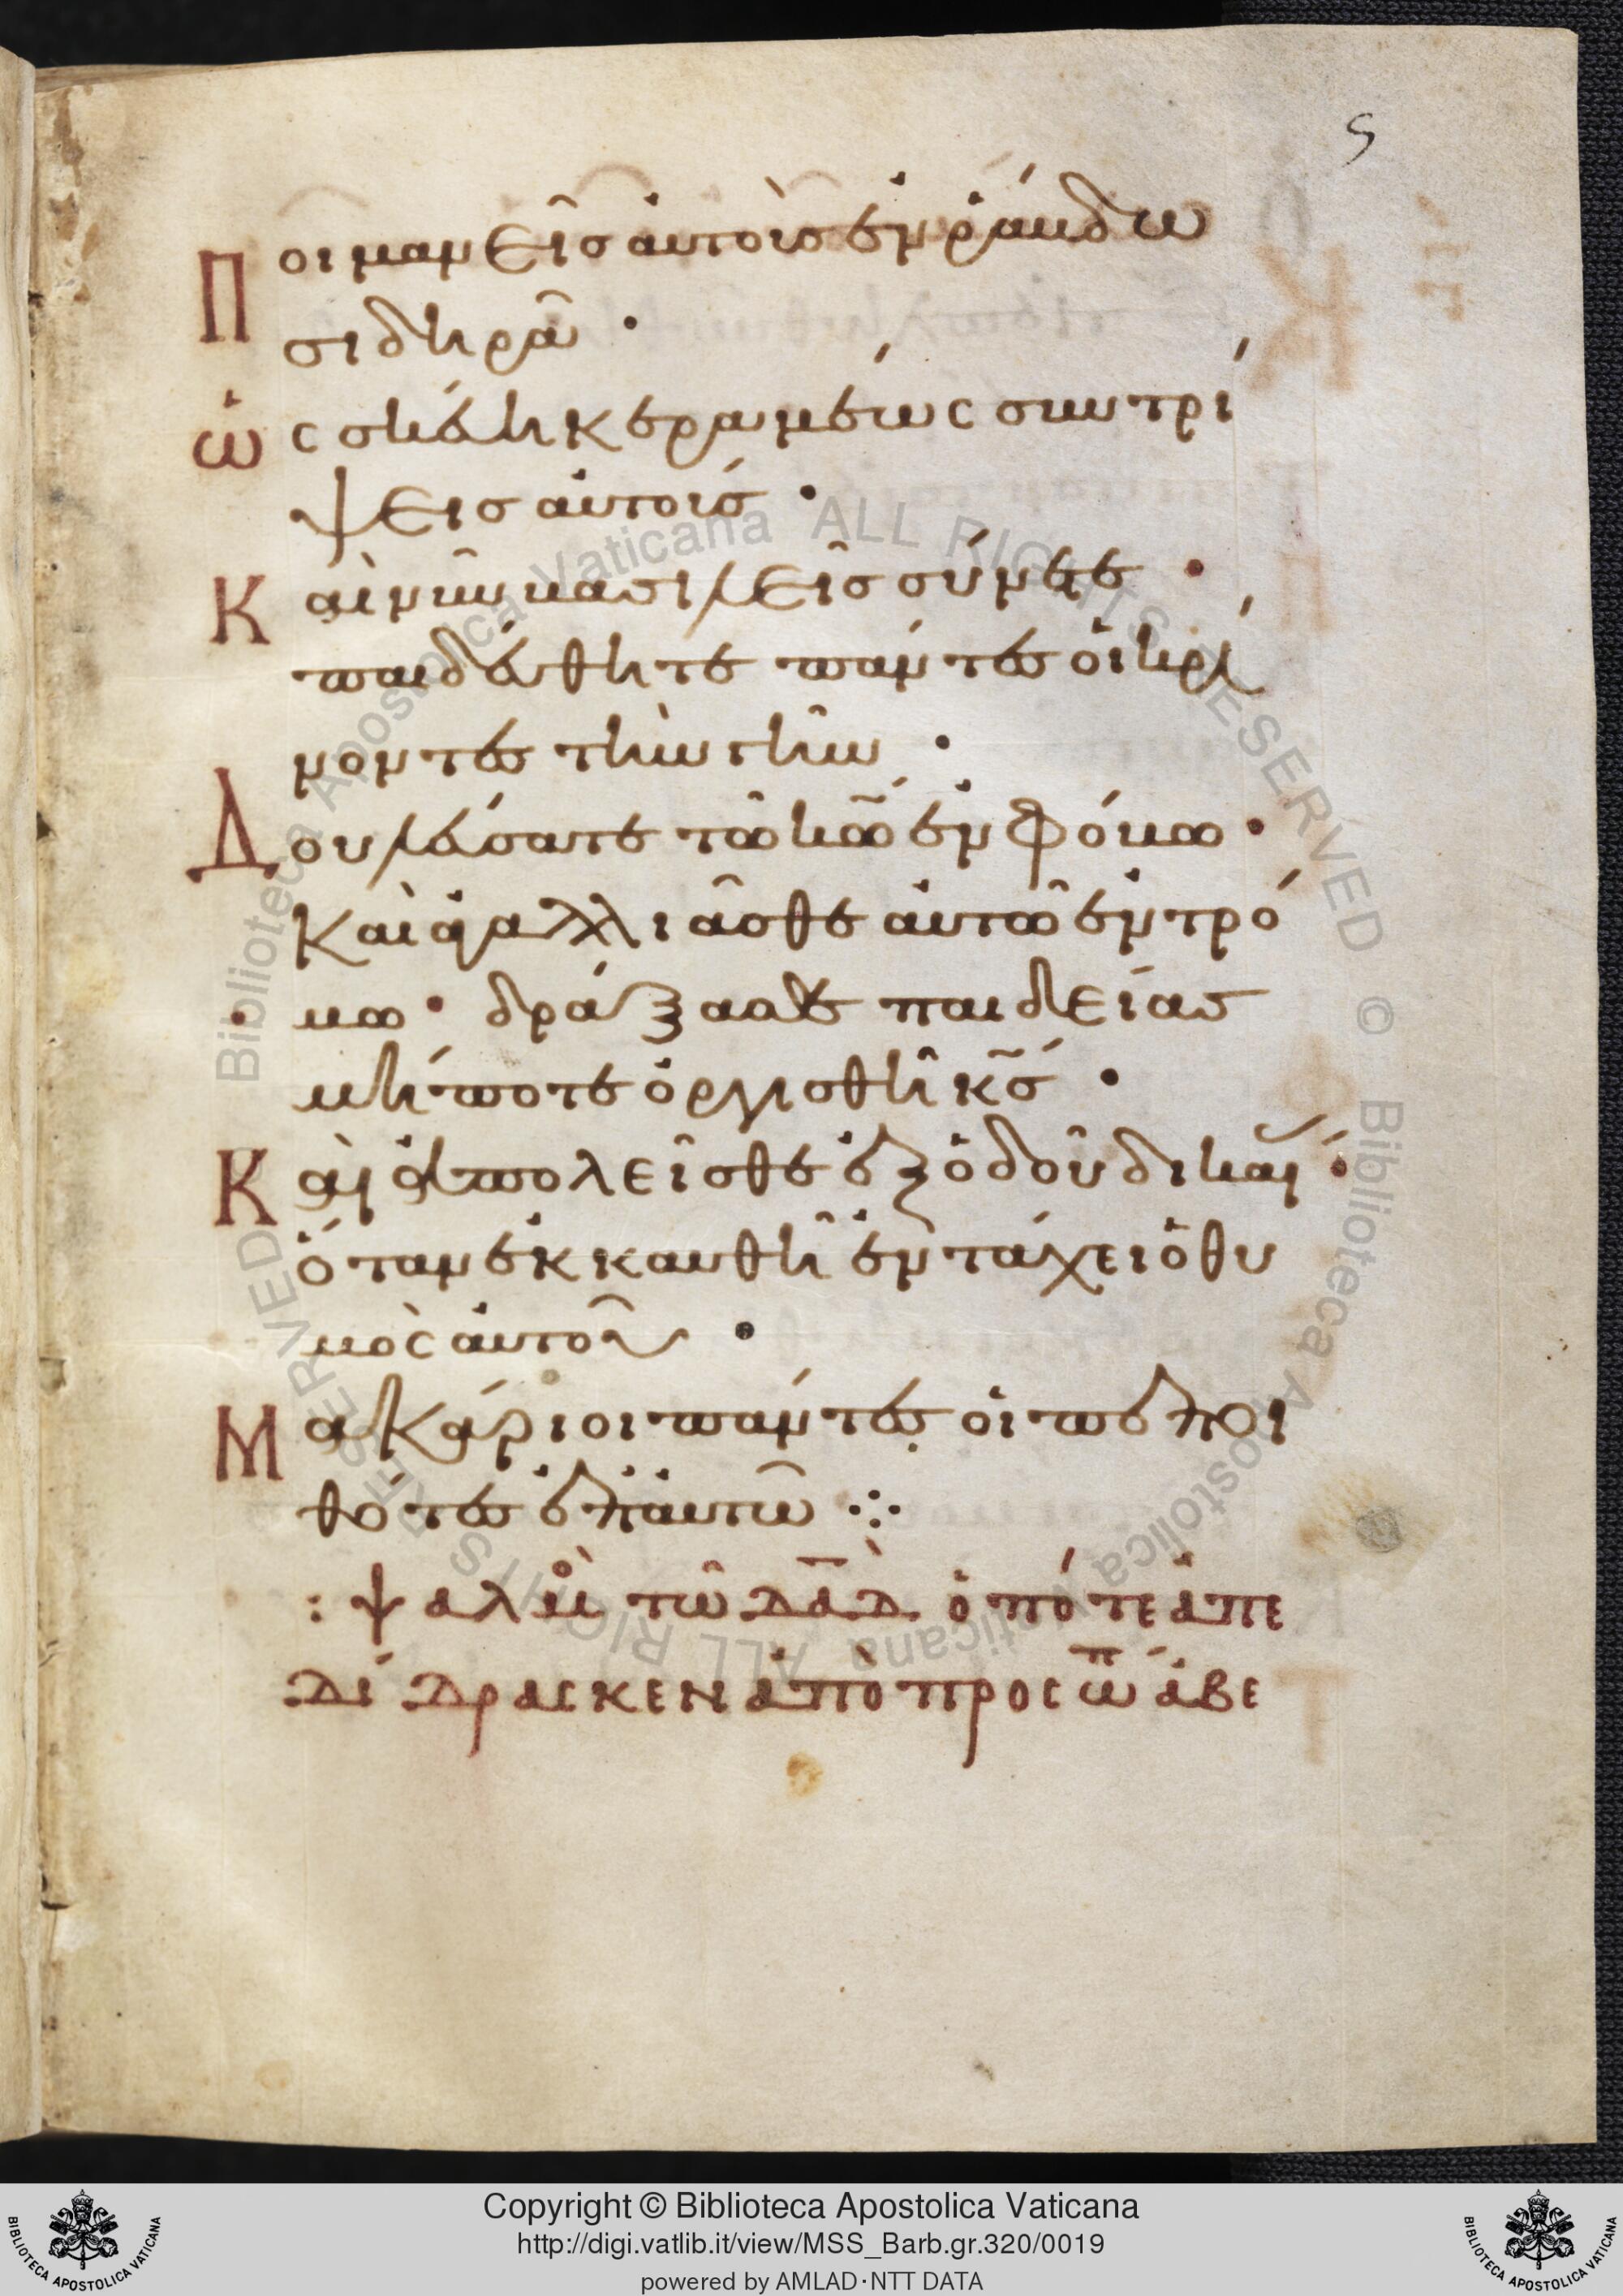 5
Ποιμανεῖς αὐτοὺς ἐν ῥάβδω
σιδηρᾶ ·
ὡς σκέυη κεραμέως συντρί
ψεις αὐτούς ·
Καὶ νῦν βασιλεῖς σύνετε ·
παιδεύθητε πάντες οἱ κρί
νοντες τὴν γῆν ·
Δουλεύσατε τῶ κ̅ω̅ ἐν φόβω ·
Καὶ ἀγαλλιᾶσθε αὐτῶ ἐν τρό
μω · δράξασθε παιδείας
μήποτε ὀργισθῆ κ̅ς̅ ·
Καὶ ἀπολεῖσθε ἐξ ὁδοῦ δικαί ·
ὅταν ἐκκαυθῆ ἐν τάχει ὁ θυ
μὸς αὐτοῦ ·
Μακάριοι πάντες οἱ πεποι
θότες ἐπ' αὐτῶ ⁘
: ψαλμὸ τῶ δ̅α̅δ̅ ὁπότε ἀπε
δίδρασκεν ἀπὸ προσώπ ἀβε
Biblioteca Apostolica Vaticana ALL RIGHTS RESERVED © Biblioteca Apostolica Vaticana ALL RIGHTS RESERVED ©
Copyright © Biblioteca Apostolica Vaticana
http://digi.vatlib.it/view/MSS_Barb.gr.320/0019
powered by AMLAD·NTT DATA
BIBLIOTECA APOSTOLICA VATICANA
BIBLIOTECA APOSTOLICA VATICANA